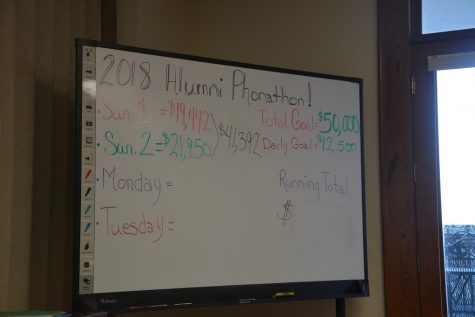 2018 Alumni Phonathon!
• Sun. 1 = $19,442
• Sun. 2 = $21,950
$41,392
Total Goal = $50,000
Daily Goal = $12,500
• Monday =
• Tuesday =
Running Total
$